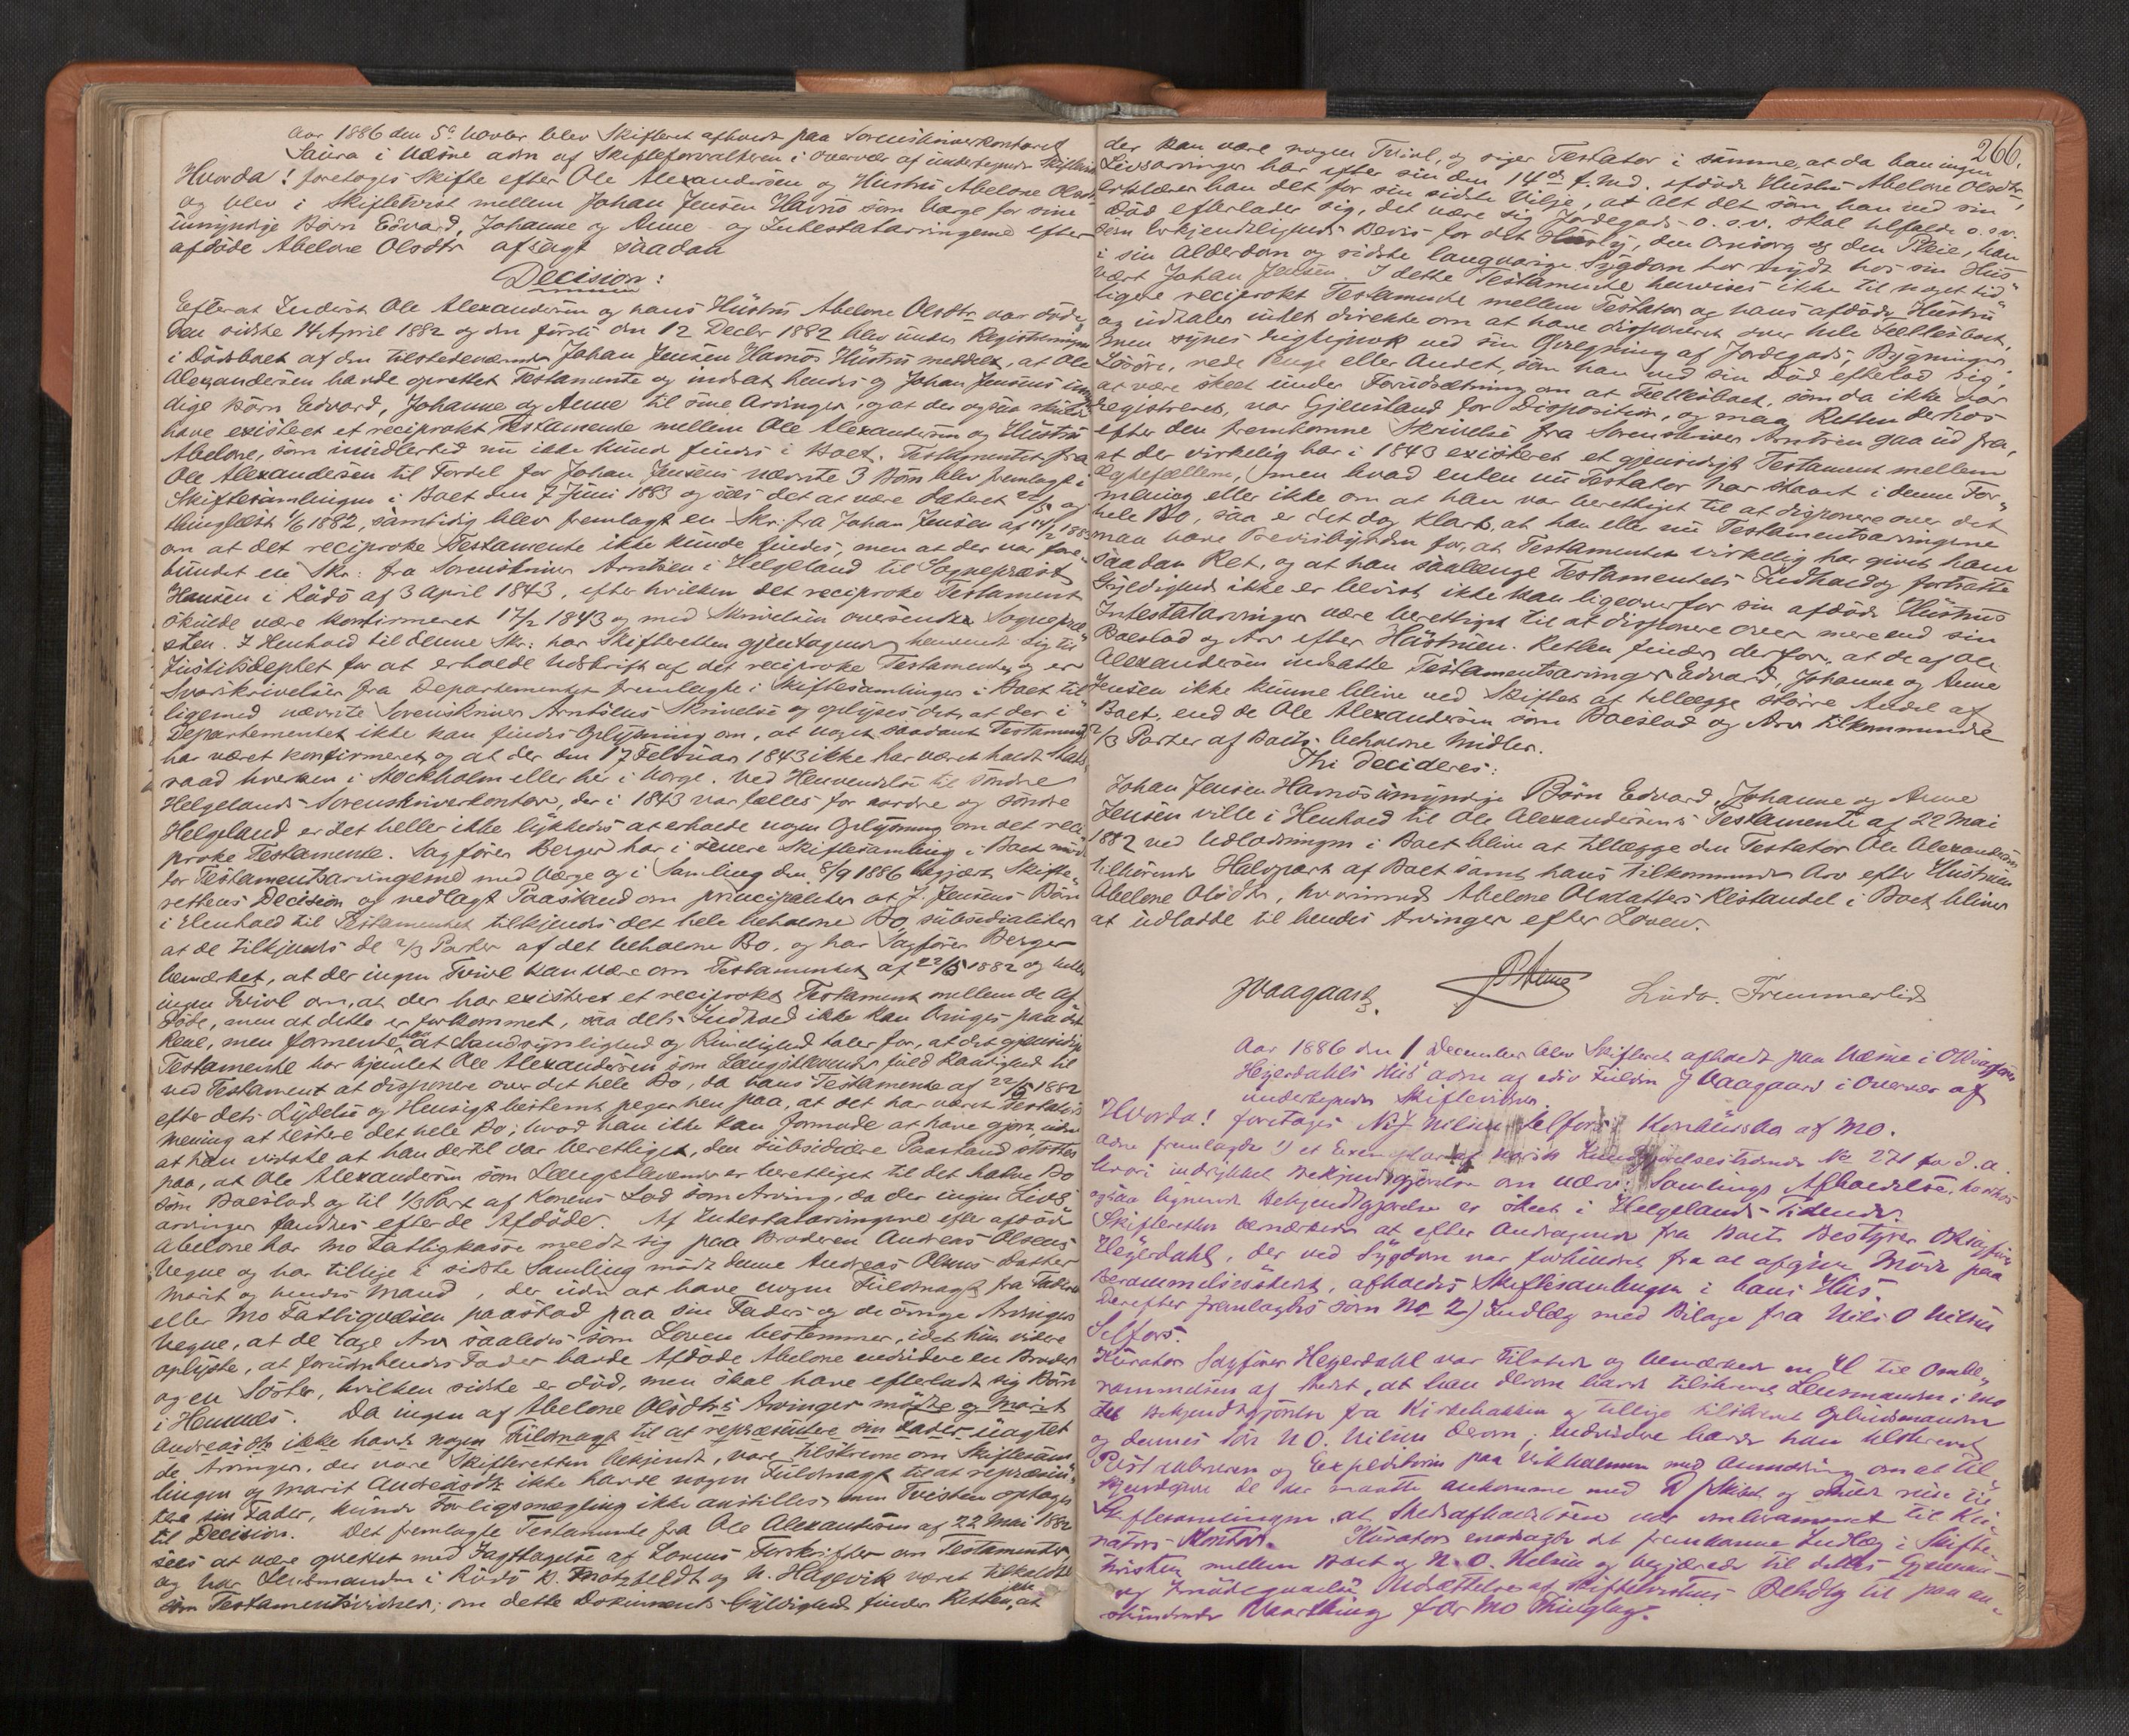 Aar 1886 den 5te Novbr blev Skifteret afholdt paa Sorenskriverkontoret
Saura i Næsne adm af Skifteforvalteren i Overvær af undertegnede Skiftevidner
Hvorda! foretoges Skifte efter Ole Alexandersen og Hustru Abelone Olsdtr
og blev i Skiftetvist mellem Johan Jensen Havnö som Værge for sine
umyndige Börn Edvard, Johanne og Anne og Intestatarvingerne efter
afdöde Abelone Olsdtr afsagt saadan
Decision:
Efterat Inderst Ole Alexandersen og hans Hustru Abelone Olsdtr var döde,
den sidste 14 April 1882 og den förste den 12 Decbr 1882 blev under Registreringen
i Dödsboet af den tilstedeværende Johan Jensen Havnös Hustru meddelt, at Ole
Alexandersen havde oprettet Testamente og indsat hendes og Johan Jensens umyn
dige Börn Edvard, Johanne og Anne til sine Arvinger, og at der ogsaa skulde
have existeret et reciprokt Testamente mellem Ole Alexandersen og Hustru
Abelone, som imidlertid nu ikke kunde findes i Boet. Testamentet fra
Ole Alexandersen til Fordel for Johan Jensens nævnte 3 Börn blev fremlagt i
Skiftesamlingen i Boet den 7 Juni 1883 og sees det at være dateret 22/5 og
thinglæst 1/6 1882, samtidig blev fremlagt en Skr: fra Johan Jensen af 14/2 1883
om at det reciproke Testamente ikke kunde findes, men at der var fore
fundet en Skr: fra Sorenskriver Arntsen i Helgeland til Sognepræst
Hansen i Rödö af 3 April 1843, efter hvilken det reciproke Testament
skulde være konfirmeret 17/2 1843 og med Skrivelsen oversendte Sognepræ
sten. I Henhold til denne Skr: har Skifteretten gjentagende henvendt sig til
Justitsdeptet for at erholde Udskrift af det reciproke Testamente, og er
Svarskrivelser fra Departementet fremlagte i Skiftesamlinger i Boet til
ligemed nævnte Sorenskriver Arntsens Skrivelse og oplyses det, at der i
Departementet ikke kan findes Oplysning om, at noget saadant Testament
har været konfirmeret, og at der den 17 Februar 1843 ikke har været holdt Stats
raad hverken i Stockholm eller her i Norge. Ved Henvendelse til Söndre
Helgelands Sorenskriverkontor, der i 1843 var fælles for nordre og söndre
Helgeland er det heller ikke lykkedes at erholde nogen Oplysning om det reci
proke Testamente. Sagförer Berger har i senere Skiftesamling i Boet mödt
for Testamentsarvingerne med Værge og i Samling den 8/9 1886 begjært Skifte
rettens Decision og nedlagt Paastand om principaliter at J. Jensens Börn
i Henhold til Testamentet tilkjendes det hele beholdne Bo, subsidialiter
at de tilkjendes de 2/3 Parter af det beholdne Bo, og har Sagförer Berger
bemærket, at der ingen Tvivl kan være om Testamentet af 22/5 1882 og heller
ingen Tvivl om, at der har existeret et reciprokt Testament mellem de Af
döde, men at dette er forkommet, saa dets Indhold ikke kan bringes paa det
Rene, men formente han at Sandsynlighed og Rimelighed taler for, at det gjensidige
Testamente har hjemlet Ole Alexandersen som Længstlevende fuld Raadighed til
ved Testament at disponere over det hele Bo, da hans Testamente af 22/5 1882
efter dets Lydelse og Hensigt bestemt peger hen paa, at det har været Testators
Mening at testere det hele Bo; hvad han ikke kan formode at have gjort, uden
at han vidste at han dertil var berettiget, den subsidiære Paastand stöttes
paa, at Ole Alexandersen som Længstlevende er berettiget til det halve Bo
som Boeslod og til 1/3 Part af Konens Lod som Arving, da der ingen Livs
arvinger fandtes efter de Afdöde. Af Intestatarvingerne efter afdöde
Abelone har Mo Fattigkasse meldt sig paa Broderen Andreas Olsens
Vegne og har tillige i sidste Samling mödt denne Andreas Olsens Datter
Marit og hendes Mand, der uden at have nogen Fuldmagt fra Faderen
eller Mo Fattigvæsen paastod paa sin Faders og de övrige Arvingers
Vegne, at de tage Arv saaledes som Loven bestemmer, idet hun videre
oplyste, at foruden hendes Fader havde Afdöde Abelone endvidere en Broder
og en Söster, hvilken sidste er död, men skal have efterladt sig Börn
i Hemnes. Da ingen af Abelone Olsdtrs Arvinger mödte og Marit
Andreasdtr ikke havde nogen Fuldmagt til at repræsentere sin Fader uagtet
de Arvinger, der vare Skifteretten bekjendt, vare tilskrevne om Skiftesam
lingen og Marit Andreasdtr ikke havde nogen Fuldmagt til at repræsen
tere sin Fader, kunde Forligsmægling ikke anstilles, men Tvisten optoges
til Decision. Det fremlagte Testamente fra Ole Alexandersen af 22 Mai 1882
sees at være oprettet med Iagttagelse af Lovens Forskrifter om Testamenter
og har Lensmanden i Rödö P. Motzfeldt og N. Hagevik været tilkaldte
som Testamentsvidner; om dette Dokuments Gyldighed finder Retten ikke at
266.
der kan være nogen Tvivl, og siger Testator i samme, at da han ingen
Livsarvinger har efter sin den 14de f. Md. afdöde Hustru Abelone Olsdtr,
erklærer han det for sin sidste Vilje, at Alt det som han ved sin
Död efterlader sig, det være sig Jordegods o.s.v. skal tilfalde o.s.v.
som Erkjendtligheds Bevis for det Husly, den Omsorg og den Pleie, han
i sin Alderdom og sidste langvarige Sygdom har nydt hos sin Hus
vært Johan Jensen. I dette Testamente henvises ikke til noget tid
ligere reciprokt Testamente mellem Testator og hans afdöde Hustru
og udtaler intet direkte om at have disponeret over hele Fællesboet,
men synes rigtignok ved sin Opregning af Jordegods, Bygninger,
Lösöre, rede Penge eller Andet, som han ved sin Död efterlod sig,
at være skeet under Forudsætning om at Fællesboet, som da ikke var
registreret, var Gjenstand for Disposition, og maa Retten derhos
efter den fremkomne Skrivelse fra Sorenskriver Arntsen gaa ud fra,
at der virkelig har i 1843 existeret et gjensidigt Testament mellem
Ægtefællerne, men hvad enten nu Testator har staaet i denne For
mening eller ikke om at han var berettiget til at disponere over det
hele Bo, saa er det dog klart, at han eller nu Testamentsarvingerne
maa have Bevisbyrden for, at Testamentet virkelig har givet ham
saadan Ret, og at han saalænge Testamentets Indhold og fortsatte
Gyldighed ikke er bevist, ikke kan ligeoverfor sin afdöde Hustrus
Intestatarvinger være berettiget til at disponere over mere end sin
Boeslod og Arv efter Hustruen. Retten finder derfor, at de af Ole
Alexandersen indsatte Testamentsarvinger Edvard, Johanne og Anne
Jensen ikke kunne blive ved Skiftet at tillægge större Andel af
Boet, end de Ole Alexandersen som Boeslod og Arv tilkommende
2/3 Parter af Boets beholdne Midler.
Thi decideres:
Johan Jensen Havnös umyndige Börn Edvard, Johanne og Anne
Jensen ville i Henhold til Ole Alexandersens Testamente af 22 Mai
1882 ved Udlodningen i Boet blive at tillægge den Testator Ole Alexandersen
tilhörende Halvpart af Boet samt hans tilkommende Arv efter Hustruen
Abelone Olsdtr, hvorimod Abelone Olsdatters Restandel i Boet bliver
at udlodde til hendes Arvinger efter Loven.
JVaagaard. Ludv. Fremmerlid
Aar 1886 den 1 December blev Skifteret afholdt paa Næsne i OR Sagförer
Heyerdahls Hus adm af edsv Fuldm J Vaagaard i Overvær af
undertegnede Skiftevidner.
Hvorda! foretoges Nils O. Nilsen Selfors Konkursbo af Mo.
Adm fremlagde 1) et Exemplar af Norsk Kundgjörelsestidende No 271 for d. a.
hvori indrykket Bekjendtgjörelse om nærv: Samlings Afholdelse, hvorhos
ogsaa lignende Bekjendtgjörelse er skeet i Helgelands Tidende.
Skifteretten bemærkede at efter Andragende fra Boets Bestyrer ORsagförer
Heyerdahl, der ved Sygdom var forhindret fra at afgive Möde paa
Berammelsesstedet, afholdes Skiftesamlingen i hans Hus.
Derefter fremlagdes som No 2) Indlæg med Bilage fra Nils O Nilsen
Selfors.
Kurator Sagförer Heyerdahl var tilstede og bemærkede m H til Ombe
rammelsen af Stedet, at han derom havde tilskrevet Lensmanden i Mo
til Bekjendtgjörelse fra Kirkebakken og tillige tilskrevet Opbudsmanden
og dennes Sön N O. Nilsen derom, endvidere havde han tilskrevet
Postaabneren og Expeditören paa Vikholmen med Anmodning om at til
kjendegive de der maatte ankomme med D/Skibet og skulde reise til
Skiftesamlingen, at Stedsafholdelsen var omberammet til Ku
rators Kontor. Kurator modtog det fremkomne Indlæg i Skifte
tvisten mellem Boet og N. O. Nilsen og begjærede til dettes Gjennem
og Imödegaaelse Udsættelse af Skiftetvistens Behdlg til paa an
stundende Vaarthing for Mo Thinglag.